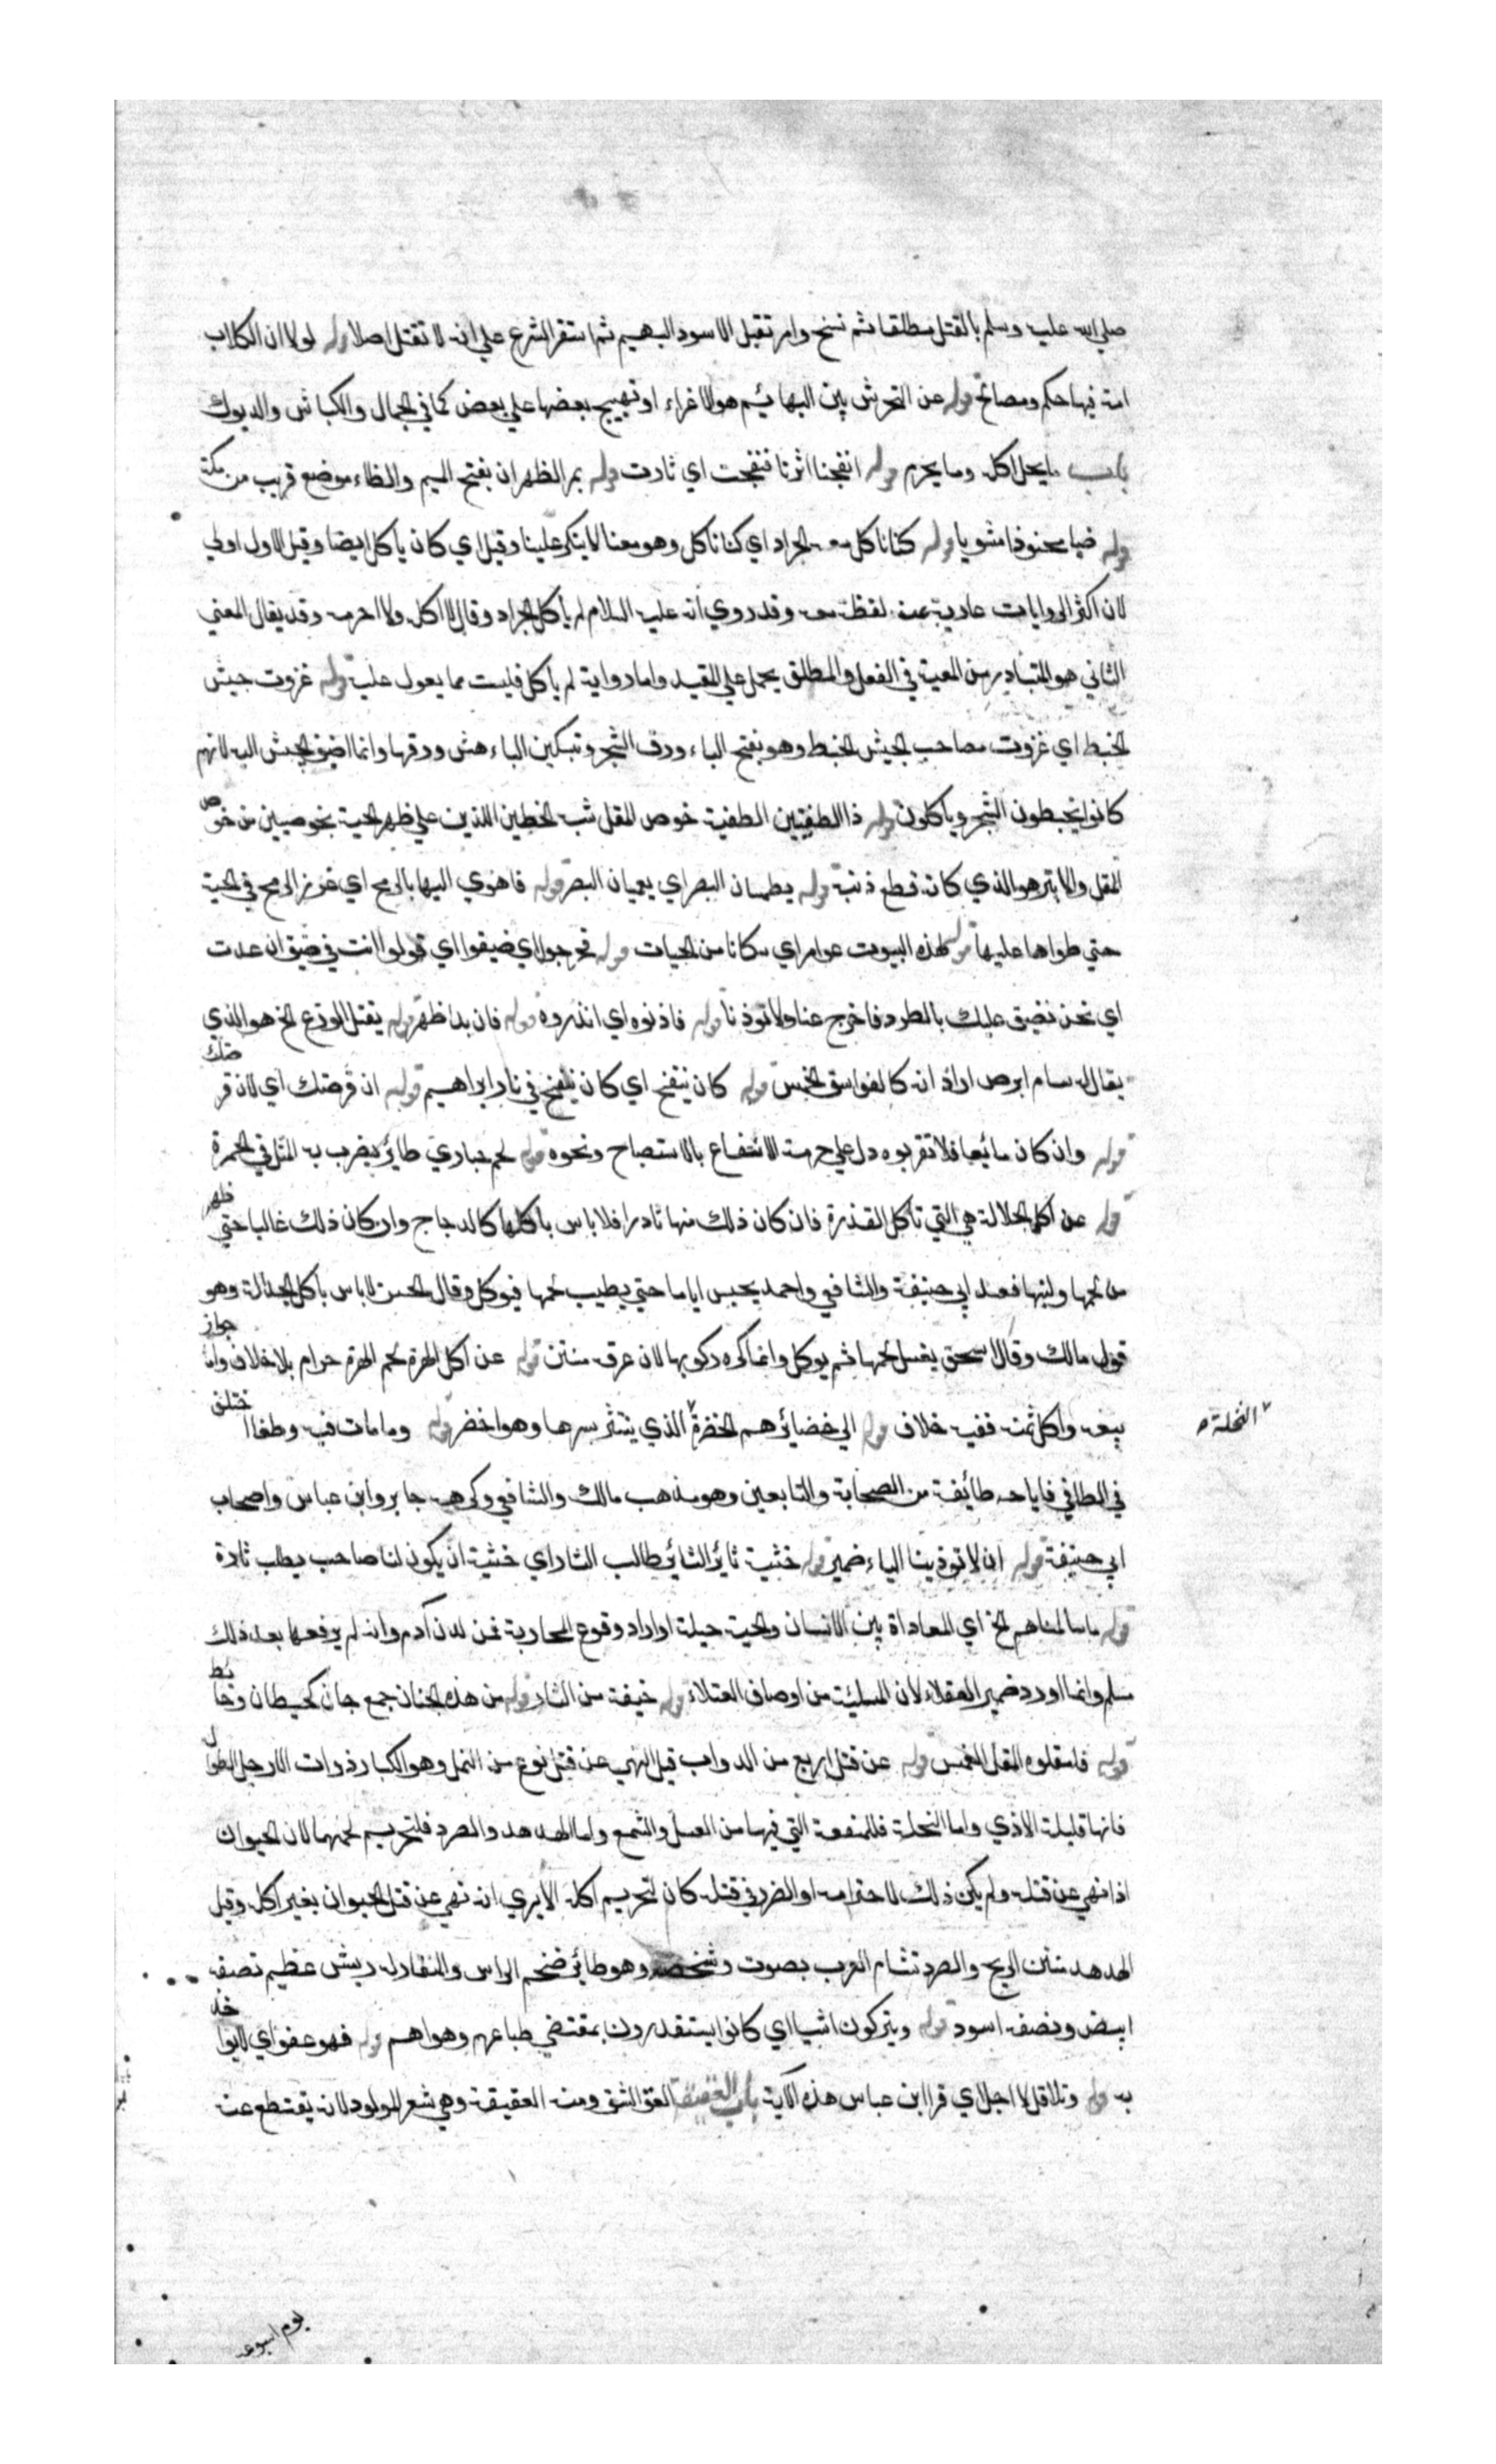 صلي الله عليه وسلم بالقتل مطلقا ثم نسخ وامر بقتل الاسود البهيم ثم استقر الشرع علي انه لا تقتل اصلا قوله لولا ان الكلاب
امة فيها حكم ومصالح قوله عن التحرش بين البهائم هو الاغراء او تهييج بعضها علي بعض كما في الجمال والكباش والديوك
باب ما يحل اكله وما يحرم قوله انفجنا اثرنا فنفجت اي ثارت قوله بمر الظهران بفتح الميم والظاء موضع قريب من مكة
قوله ضبا محنوذا مشويا قوله كنا ناكل معه الجراد اي كنا ناكل وهو معنا لا ينكر علينا وقيل اي كان ياكل ايضا وقيل الاول اولي
لان اكثر الروايات عارية عن لفظة معه وقد روي انه عليه السلام لم ياكل الجراد وقال لا اكله ولا احرمه وقد يقال المعني
الثاني هو المتبادر من المعية في الفعل والمطلق يحمل علي المقيد واما رواية لم ياكل فليست مما يعول عليه قوله غزوت جيش
الخبط اي غزوت مصاحب الجيش الخبط وهو بفتح الباء ورق الشجر وتسكين الباء هش ورقها وانما اضيف الجيش اليه لانهم
كانوا يخبطون الشجر وياكلون قوله ذا الطفيتين الطفية خوص المقل شبه الخطين اللذين علي ظهر الحية بخوصيين من خوص
المقل والابتر هو الذي كانه قطع ذنبه قوله يطمسان البصر اي يعميان البصر قوله فاهوي اليها بالرمح اي غرز الرمح في الحية
حتي طواها عليها قوله لهذه البيوت عوامر اي سكانا من الحيات قوله فحرجوا اي ضيقوا اي قولوا انت في ضيق ان عدت
اي نحن نضيق عليك بالطرد فاخرج عنا ولا توذنا قوله فاذنوه اي انذروه قوله فان بدا ظهر قوله يقتل الوزغ الخ هو الذي
يقال له سام ابرص اراد انه كالفواسق الخمس قوله كان ينفخ اي كان ينفخ في نار ابراهيم قوله ان قرصتك اي لان قرصتك
قوله وان كان مائعا فلا تقربوه دل علي حرمة الانتفاع بالاستصباح ونحوه قوله لحم حباري طائر يضرب به المثل في الحمرة
قوله عن اكل الجلالة هي التي تاكل القذرة فان كان ذلك منها نادرا فلا باس باكلها كالدجاج وان كان ذلك غالبا حتي ظهر
من لحمها ولبنها فعند ابي حنيفة والشافي واحمد يحبس اياما حتي يطيب لحمها فيوكل وقال الحسن لا باس باكل الجلالة وهو
قول مالك وقال اسحق يغسل لحمها ثم يوكل وانما كره ركوبها لان عرقه منتن قوله عن اكل الهرة لحم الهرة حرام بلا خلاف واما جواز
بيعه واكل ثمنه ففيه خلاف قوله الي خضائرهم الخضرة الذي ينتثر بسرها وهو اخضر قوله وما مات فيه وطفا اختلف
النخلة
في الطافي فاباحه طائفة من الصحابة والتابعين وهو مذهب مالك والشافي وكرهه جابر وابن عباس واصحاب
ابي حنيفة قوله ان لا توذينا الياء ضمير قوله خشية ثائر الثائر طالب الثار اي خشية ان يكون لنا صاحب يطلب ثارة
قوله ما سالمناهم الخ اي المعاداة بين الانسان والحية جبلة او اراد وقوع المحاربة فمن لدن آدم وانه لم يرفعها بعد ذلك
سلم وانما اورد ضمير العقلاء لان المسلمة من اوصاف العقلاء قوله خيفة من الثار قوله من هذه الجنان جمع جان كحيطان وحائط
قوله فامقلوه المقل الغمس قوله عن قتل اربع من الدواب قيل النهي عن قتل نوع من النمل وهو الكبار ذوات الارجل الطوال
فانها قليلة الاذي واما النحلة فللمنفعة التي فيها من العسل والشمع واما الهدهد والصرد فلتحريم لحمهما لان الحيوان
اذا نهي عن قتله ولم يكن ذلك لاحترامه او الضرر في قتله كان لتحريم اكله الا يري انه نهي عن قتل الحيوان بغير اكله وقيل
الهدهد منتن الريح والصرد تتشام العرب بصوته وشخصه وهو طائر ضخم الراس والمنقار له ريش عظيم نصفه
ابيض ونصفه اسود قوله ويتركون اشيا اي كانوا يستقذرون بمقتضي طباعهم وهواهم قوله فهو عفو اي لا يواخذ
به قوله وتلا قل لا اجد اي قرا ابن عباس هذه الآية باب العقيقة العق الشق ومنه العقيقة وهي شعر المولود لانه يقتطع عنه
يوم اسبوعه